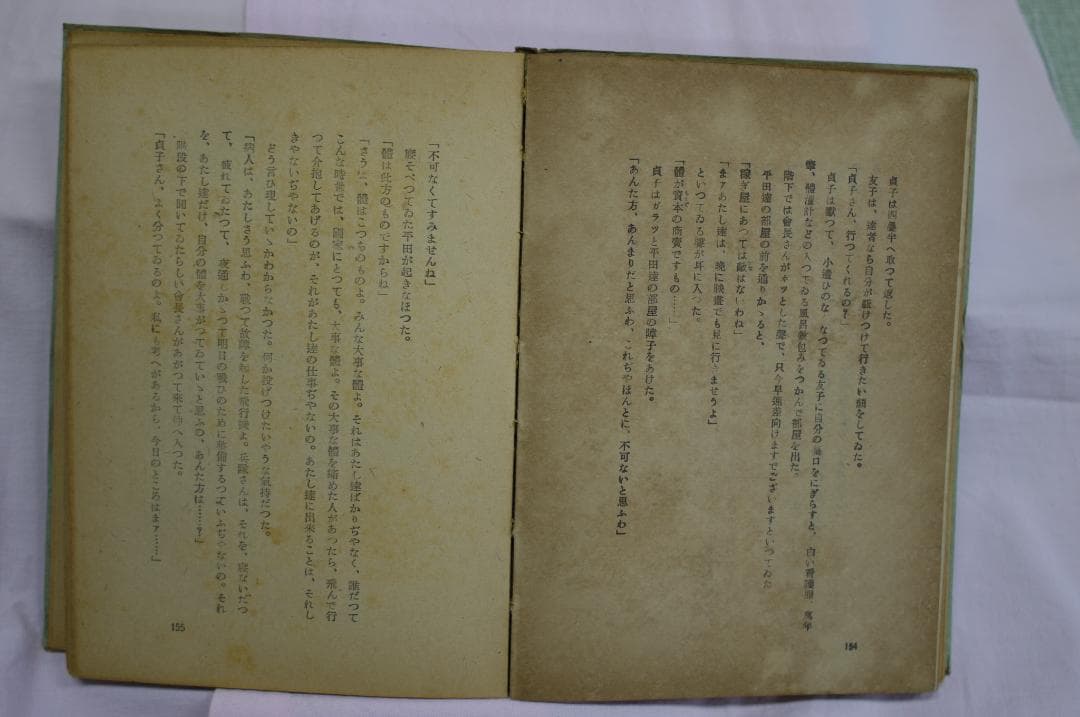 貞子は四疊半へ取つて返した。
友子は、達者なら自分が駈けつけて行きたい顏をしてゐた。
「貞子さん、行つてくれるの？」
貞子は默つて、小遣ひのな　なつてゐる友子に自分の蟇口をにぎらすと、白い看護服　萬年
筆、體溫計などの入つてゐる風呂敷包みをつかんで部屋を出た。
階下では會長さんがホッとした聲で、只今早速差向けますでございますといつてゐた
平田達の部屋の前を通りかゝると、
「稼ぎ屋にあつては敵はないわね」
「まァあたし達は、晩に映畫でも見に行きませうよ」
といつてゐる聲が耳に入つた。
「體が資本の商賣ですもの……」
貞子はガラッと平田達の部屋の障子をあけた。
「あんた方、あんまりだと思ふわ、これぢやほんとに、不可ないと思ふわ」
154
「不可なくてすみませんね」
寢そべつてゐた平田が起きなほつた。
「體は此方のものですからね」
「さうよ、體はこつちのものよ。みんな大事な體よ。それはあたし達ばかりぢやなく、誰だつて
こんな時世では、國家にとつても、大事な體よ。その大事な體を痛めた人があつたら、飛んで行
つて介抱してあげるのが、それがあたし達の仕事ぢやないの。あたし達に出來ることは、それし
きやないぢやないの」
どう言ひ現していゝかわからなかつた。何か投げつけたいやうな氣持だつた。
「病人は、あたしさう思ふわ、戰つて故障を起した飛行機よ。兵隊さんは、それを、寢ないだつ
て、疲れてゐたつて、夜通しかゝつて明日の戰ひのために整備するつていふぢやないの。それ
を、あたし達だけ、自分の體を大事がつてゐていゝと思ふの、あんた方は……？」
階段の下で聞いてゐたらしい會長さんがあがつて來て中へ入つた。
「貞子さん、よく分つてゐるのよ。私にも考へがあるから、今日のところはまァ……」
155